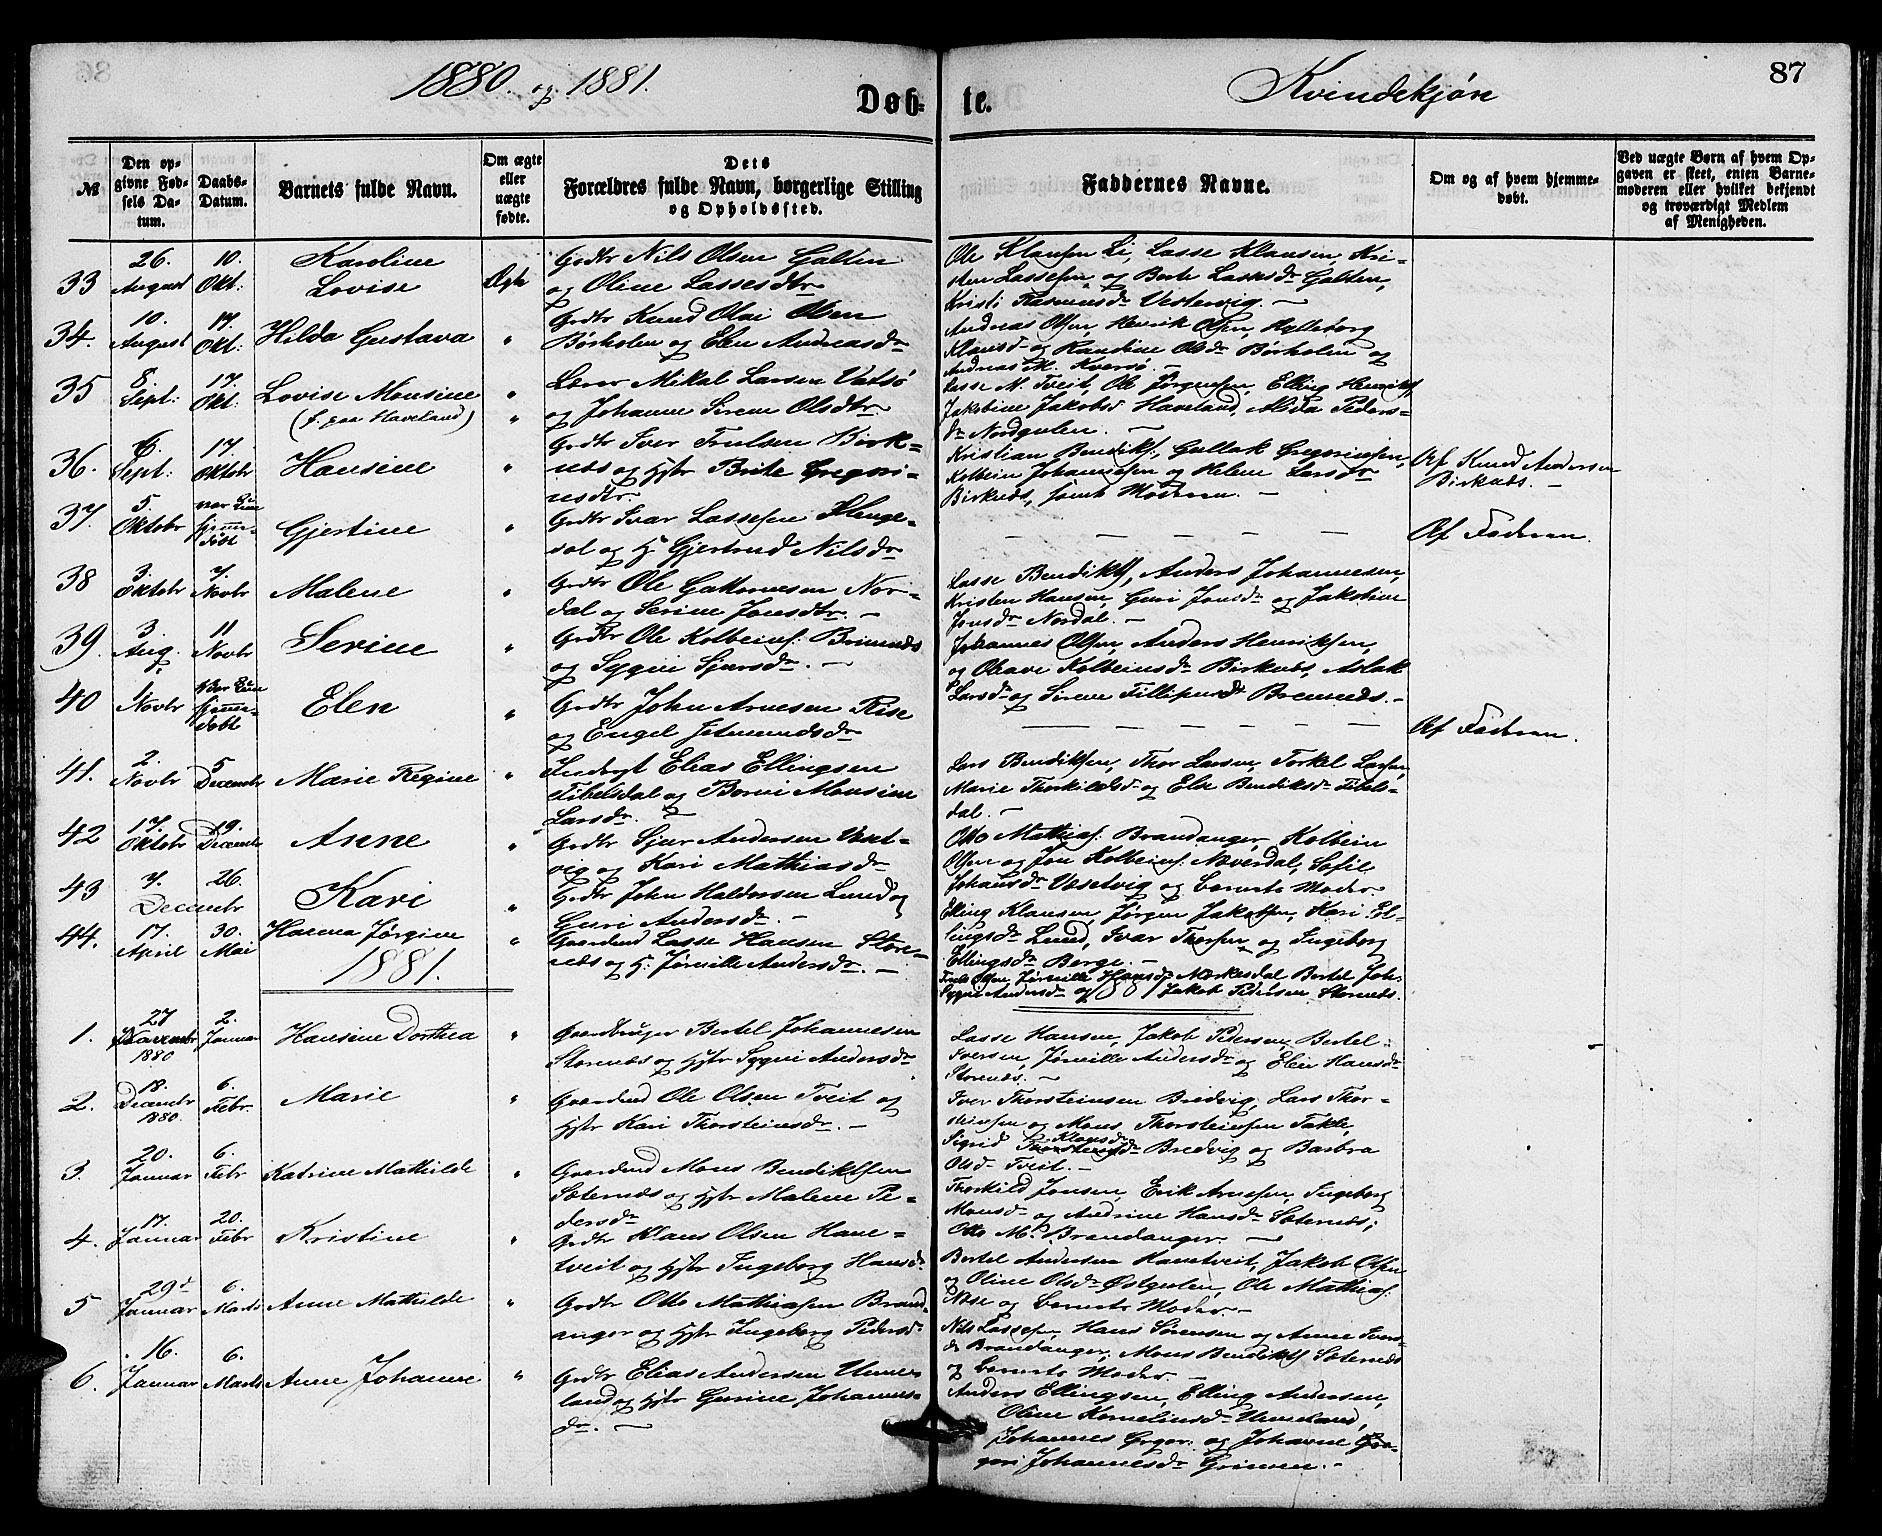 1880 og 1881.
Døb-
te.
Kvindekjøn
87
№
Den op-
givne Fød-
sels Da-
tum.
Daabs-
Datum.
Barnets fulde Navn.
Om ægte
eller
uægte
fødte.
Dets
Forældres fulde Navn, borgerlige Stilling
og Opholdssted.
Faddernes Navne.
Om og af hvem hjemme-
døbt.
Ved uægte Børn af hvem Op-
gaven er skeet, enten Barne-
moderen eller hvilket bekjendt
og troværdigt Medlem
af Menigheden.
33
26.
August
10.
Okt:
Karoline
Lovise
Ægte
Grdbr Nils Olsen Galten
og Oline Lassesdtr
Ole Klausen Li, Lasse Klausen, Kri-
sten Lassesen, og Berte Lassesdr Galten,
Kristi Rasmusdr Vestervig. —
34.
10.
August
17.
Okt:
Hilda Gustava
"
Grdbr Knud Olai Olsen
Børholen og Elen Andreasdr
Andreas Olsen, Henrik Olsen,
Klausdr og Olsdr Børholen og
Andreas M. Kversø.
35
8.
Sept:
17.
Okt:
Lovise Monsine
(f. paa Haveland)
"
Lærer Mikal Larsen Vatsø
og Johanne Sirene Olsdtr.
Lasse N. Tveit, Ole Jørgensen, Elling
Jakobine Jakobsd Haveland, Alida Peders-
dr Nordgulen. —
36.
6.
Sept:
17.
Oktobr
Hansine
"
Grdbr Iver Trulsen Birk-
næs og Hstr Brite Gregori-
usdtr.
Kristian Bendiks:, Gullak Gregoriusen,
Kolbein Johannesen og Helene Larsdr
Birknæs, samt Moderen. —
Af Knud Andersen
Birknæs. —
37.
5.
Oktobr
var kun
hjemme-
døbt
Gjertine
"
Grdbr Ivar Lassesen Klenge-
dal og H. Gjertrud Nilsdr
— — — — — —
Af Faderen.
38
3.
Oktobr
7.
Novbr
Malene
"
Grdbr Ole Guttormsen Nor-
dal og Serine Jonsdtr. —
Lasse Bendiks, Anders Johannesen,
Kristen Hansen, Guri Jonsdr og Jakobine
Jonsdr Nordal. —
39.
3
Aug.
11
Novbr
Serine
"
Grdbr Ole Kolbeins: Bremnes
og Sygni Sjursdr. —
Johannes Olsen, Anders Henriksen,
og Olave Kolbeinsdr Birknæs, Aslak
Larsdr og Sirene Fillipusdr Bremnes. —
40
1
Novbr
Var kun
hjemme-
døbt
Elen
"
Grdbr John Arnesen Rise
og Engel Jetmundsdr
— — — — — —
Af Faderen.
41.
2.
Novbr
5
Decembr
Marie Regine
"
Inderst Elias Ellingsen
Tibelsdal og Boren Monsine
Larsdr. —
Lars Bendiksen, Thor Larsen, Torkel Larsen,
Marie Thorkildsdr og Elen Bendiksdr Tibels-
dal. —
42
17.
Oktobr
19.
Decembr
Anne
"
Grdbr Sjur Andersen Væset-
vig og Kari Mathiasdr
Otto Mathias: Brandanger, Kolbein
Olsen og Jon Kolbeins: Næverdal, Sofie
Johansdr Væsetvig og Barnets Moder.
43
7.
26.
Decembr
Kari
"
Grdbr John Haldorsen Lund og
Guri Andersdr. —
Elling Klausen, Jørgen Jakobsen, Kari El-
lingsdr Lund, Ivar Thorsen og Ingeborg
Ellingsdr Berge. —
44.
17.
April
30.
Mai
Hanna Jørgine
"
Gaardmd Lasse Hansen Store-
næs og H: Jørnille Andersdr. —
Jørnille Hansdr Nærkesdal Bertel Joh:
Sygni Andersdr og Jakob Pedersen Stornæs.
1881.
1881
1.
27
Decembr
1880
2.
Januar
Hansine Dorthea
"
Gaardbruger Bertel Johannesen
Stornæs og Hstr Sygni Andersdr.
Lasse Hansen, Jakob Pedersen, Bertel
Iversen, Jørnille Andersdr og Elen Hansdr
Stornæs. —
2.
18.
Decembr
1880.
6.
Febr.
Marie
"
Gaardmd Ole Olsen Tveit og
Hstr Kari Thorsteinsdr. —
Iver Thorsteinsen Bredvig, Lars Thor-
steinsen og Mons Thorsteinsen Takle,
Sigrid Klausdr Bredvig og Barbra
Olsdr Tveit. —
3.
20.
Januar
6.
Febr
Katrine Mathilde
"
Gaardmd Mons Bendiksen
Sæternes og Hstr Malene Pe-
dersdr
Thorkild Jonsen, Erik Arnesen, Ingeborg
Monsdr og Andrine Hansdr Sæternes;
Otto M. Brandanger. —
4.
17.
Januar
20.
Febr
Kristine
"
Grdbr Klaus Olsen Hane-
tveit og Hstr Ingeborg Hansdr
Bertel Andersen Hanetveit, Jakob Olsen
og Oline Olsdr Østgulen, Ole Mathias:
Næse og Barnets Moder. —
5
29d
Januar
6.
Marts
Anne Mathilde
"
Grdbr Otto Mathiasen Brand-
anger og Hstr Ingeborg Pedersdr
Nils Lassesen, Hans Sørensen og Anne Ivers-
dr Brandanger, Mons Bendiks Sæternes
og Barnets Moder. —
6.
16.
Januar
6.
Marts
Anne Johanne
"
Grdbr Elias Andersen Unne-
land og Hstr Gurine Johannes-
dr. —
Anders Ellingsen, Elling Andersen,
Oline Korneliusdr Unneland,
Johannes Greger: og Johanne Gre-
gori Johannesdr Grinnen. —